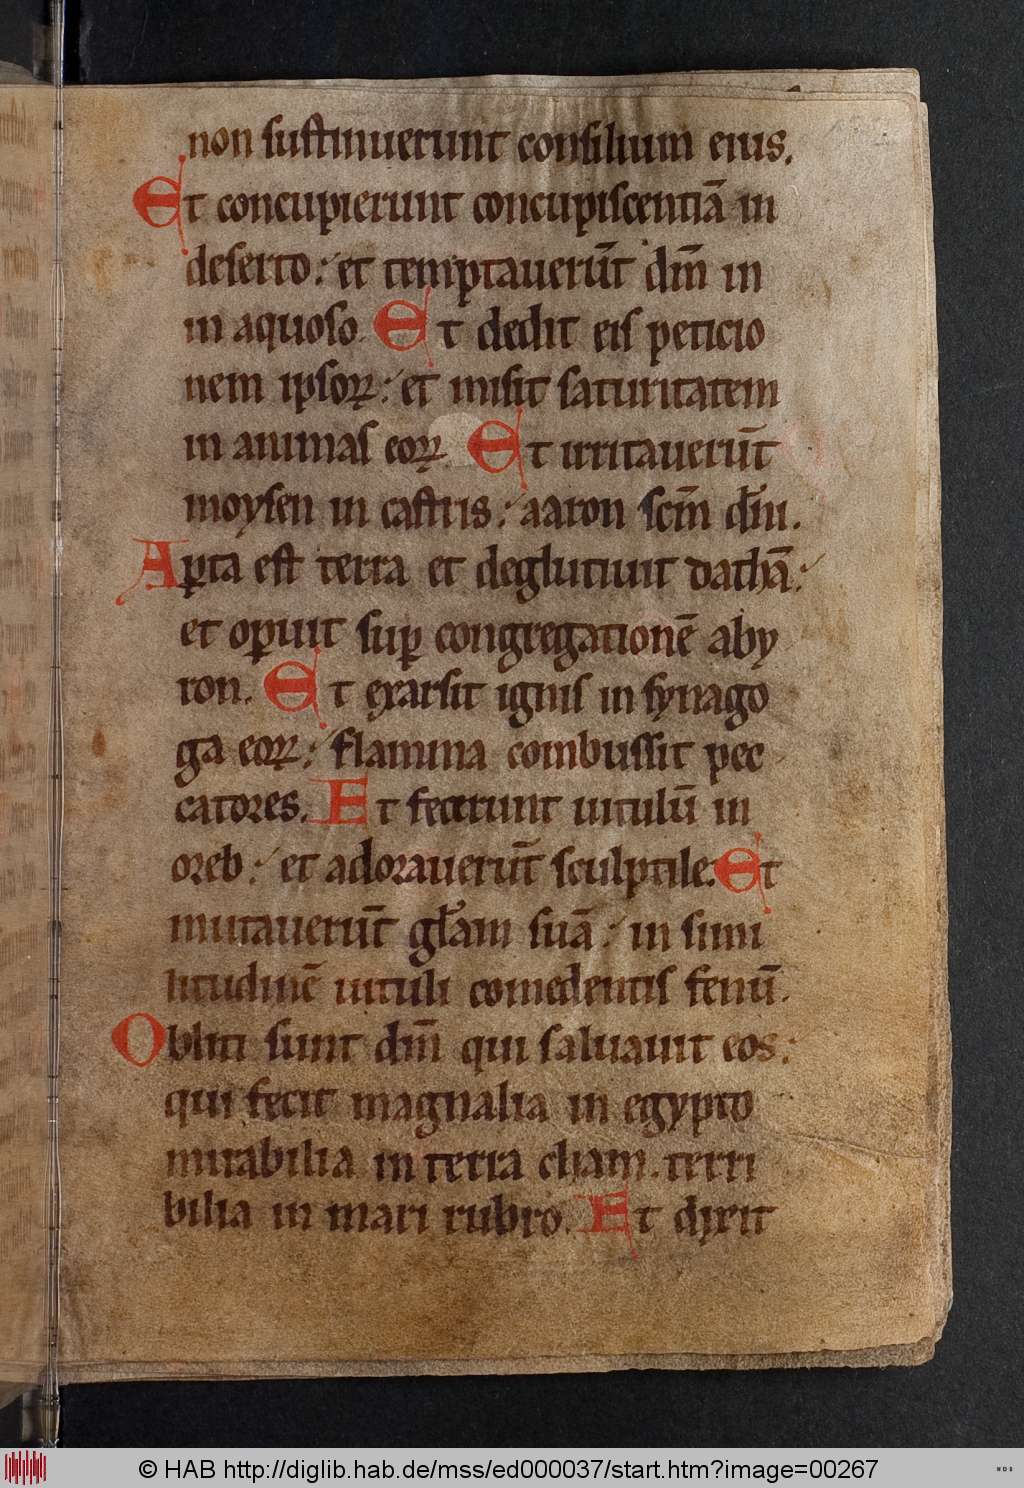 non sustinuerunt consilium eius.
Et concupierunt concupiscentiā in
deserto: et temptauerūt dm̄ in
in aquoso. Et dedit eis peticio
nem ipsoꝝ: et misit saturitatem
in animas eoꝝ. Et irritauerūt
moysen in castris: aaron scm̄ dn̄i.
Aꝑta est terra et deglutiuit dathā:
et oꝑuit suꝑ congregationē aby
ron. Et exarsit ignis in synago
ga eoꝝ: flamma combussit pec
catores. Et fecerunt uitulū in
oreb: et adorauerūt sculptile. Et
mutauerūt gl̄am suā: in simi
litudinē uituli comedentis fenū.
Obliti sunt dm̄ qui saluauit eos:
qui fecit magnalia in egypto
mirabilia in terra cham. terri
bilia in mari rubro. Et dixit
© HAB http://diglib.hab.de/mss/ed000037/start.htm?image=00267